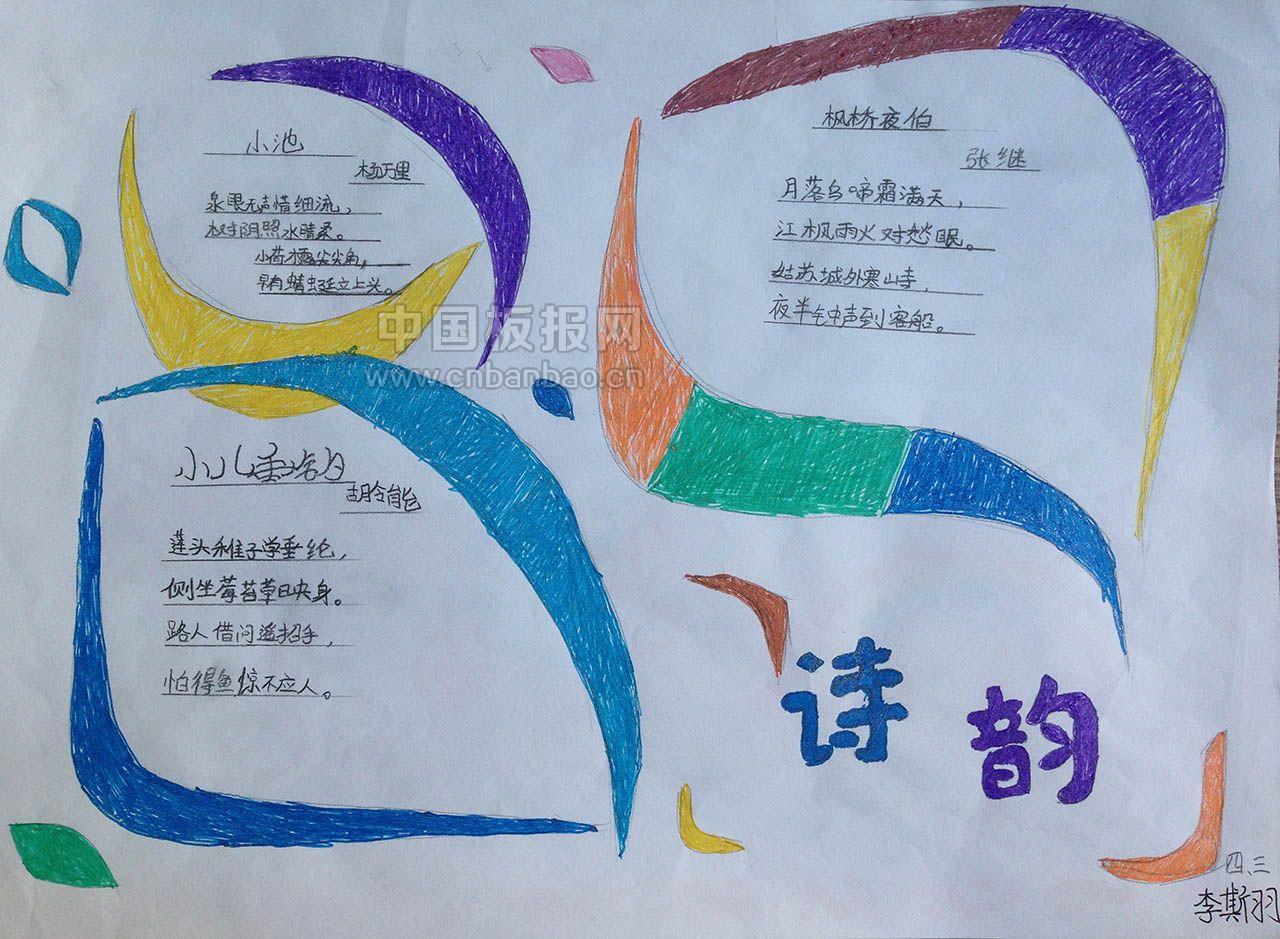 小池
杨万里
泉眼无声惜细流，
树阴照水晴柔。
小荷露尖尖角，
早有蜻蜓立上头。
枫桥夜伯
张继
月落乌啼霜满天，
江枫雨火对愁眠。
姑苏城外寒山寺，
夜半钟声到客船。
中国板报网
www.cnbanbao.cn
小儿垂钓
胡令能
蓬头稚子学垂纶，
侧坐莓苔草映身。
路人借问遥招手，
怕得鱼惊不应人。
诗韵
四、三
李斯羽